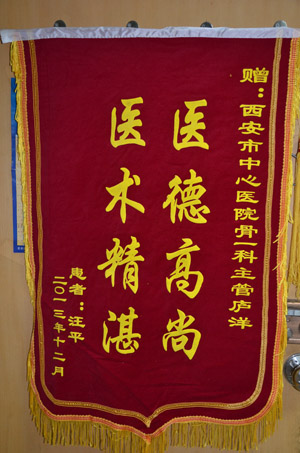 赠：西安市中心医院骨一科主管庐洋
医德高尚
医术精湛
患者：汪平
二〇一三年十二月